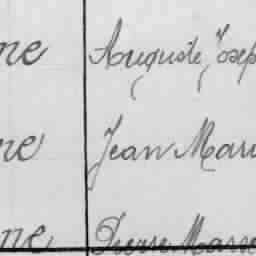 ne Auguste Josep
ne Jean Mari
ne Pierre Marie